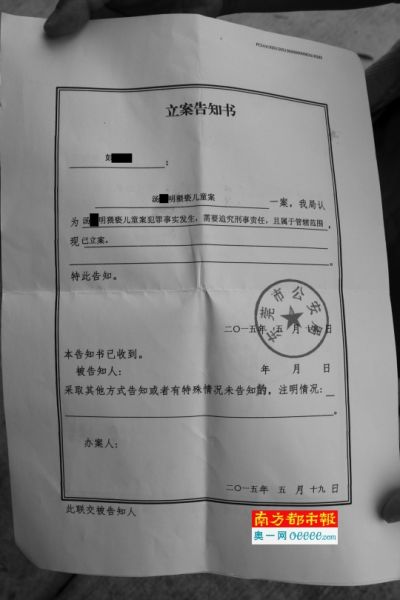 立案告知书
彭 ：
汤 明猥亵儿童案 一案，我局认
为 汤 明猥亵儿童案犯罪事实发生，需要追究刑事责任，且属于管辖范围，
现 已立案。 。
特此告知。
东莞市公安局
二〇一五年 五 月 十九 日
本告知书已收到。
被告知人： 年 月 日
采取其他方式告知或者有特殊情况未告知的，注明情况：
。
办案人：
二〇一五年 五 月 十九 日
此联交被告知人
南方都市报
奥一网 oeeee.com